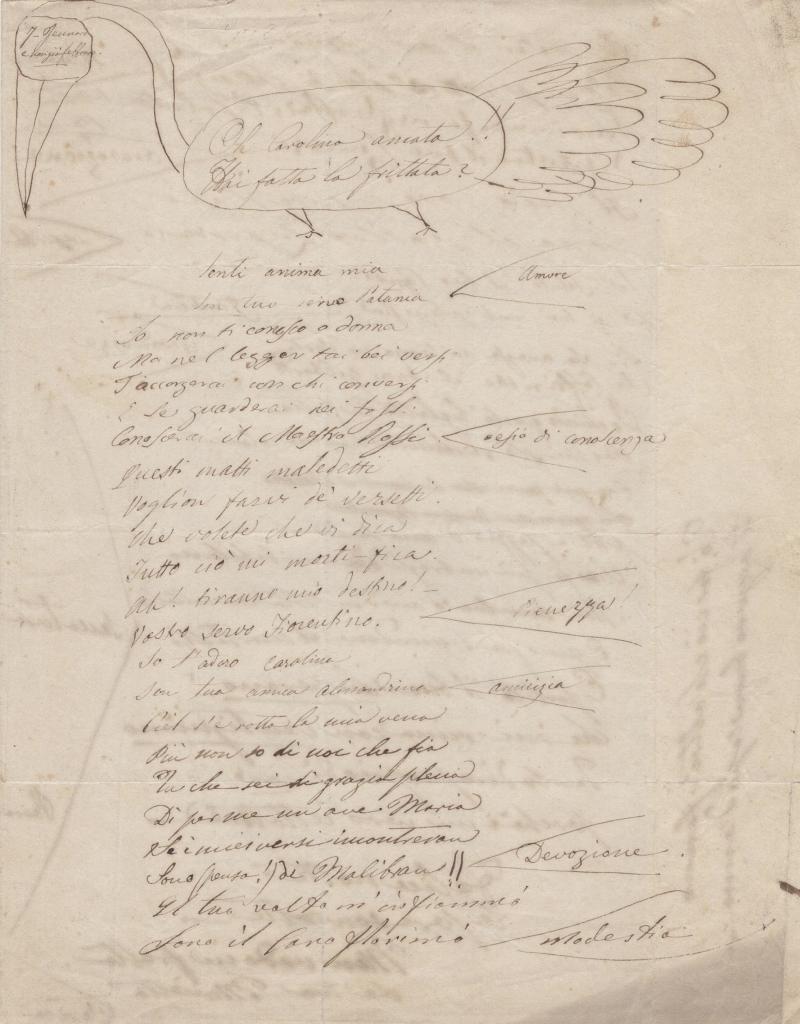 7 Gennaro
Oh Carolina amata!!
Hai fatta la frittata?
Senti anima mia
Son tuo servo Patania
Amore
Io non ti conosco o donna
Ma nel legger tai bei versi
T'accorgerai con chi conversi
E se guarderai nei fossi
Conoscerai il Maestro Rossi
desio di conoscenza
Questi matti maledetti
Voglion farvi de' versetti.
Che volete che vi dica
Tutto ciò mi morti-fica.
Ah! tiranno mio destino!
Vostro servo Fiorentino.
Pienezza!
Io t'adoro Carolina
Son tua amica Alessandrina
amicizia
Ciel s'è rotta la mia vena
Più non so di noi che fia
Tu che sei di grazia plena
Di per me un ave Maria
Se i miei versi incontreran
Sono (pensa!) di Malibran!!
Devozione.
Il tuo volto m'
Sono il caro Florimò
Modestia